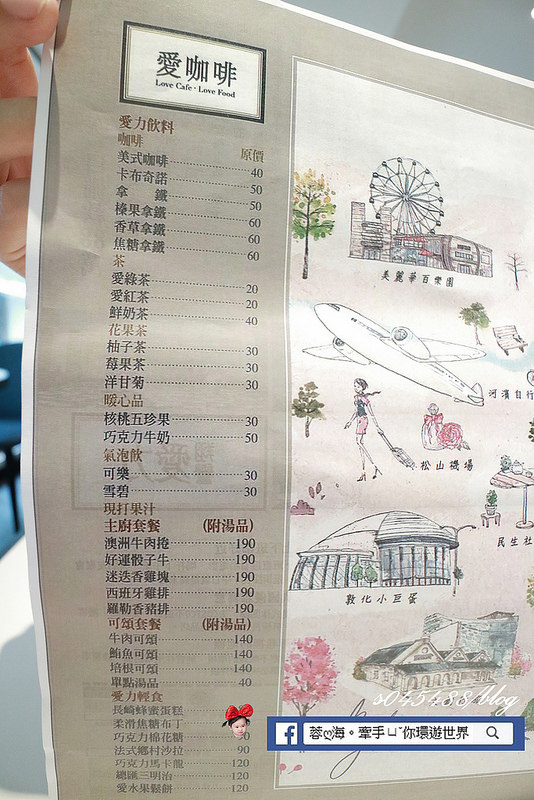 愛咖啡
Love Cafe · Love Food
愛力飲料
咖啡 原價
美式咖啡 40
卡布奇諾 50
拿 鐵 50
榛果拿鐵 60
香草拿鐵 60
焦糖拿鐵 60
茶
愛綠茶 20
愛紅茶 20
鮮奶茶 40
花果茶
柚子茶 30
莓果茶 30
洋甘菊 30
暖心品
核桃五珍果 30
巧克力牛奶 50
氣泡飲
可樂 30
雪碧 30
現打果汁
主廚套餐 (附湯品)
澳洲牛肉捲 190
好運骰子牛 190
迷迭香雞塊 190
西班牙雞排 190
羅勒香豬排 190
可頌套餐 (附湯品)
牛肉可頌 140
鮪魚可頌 140
培根可頌 140
單點湯品 40
愛力輕食
長崎蜂蜜蛋糕
柔滑焦糖布丁
巧克力棉花糖
法式鄉村沙拉 90
巧克力馬卡龍 120
總匯三明治 120
愛水果鬆餅 120
美麗華百樂園
河濱自行
松山機場
民生社
敦化小巨蛋
s045488/blog
蓉ღ海。牽手ㄩˇ你環遊世界